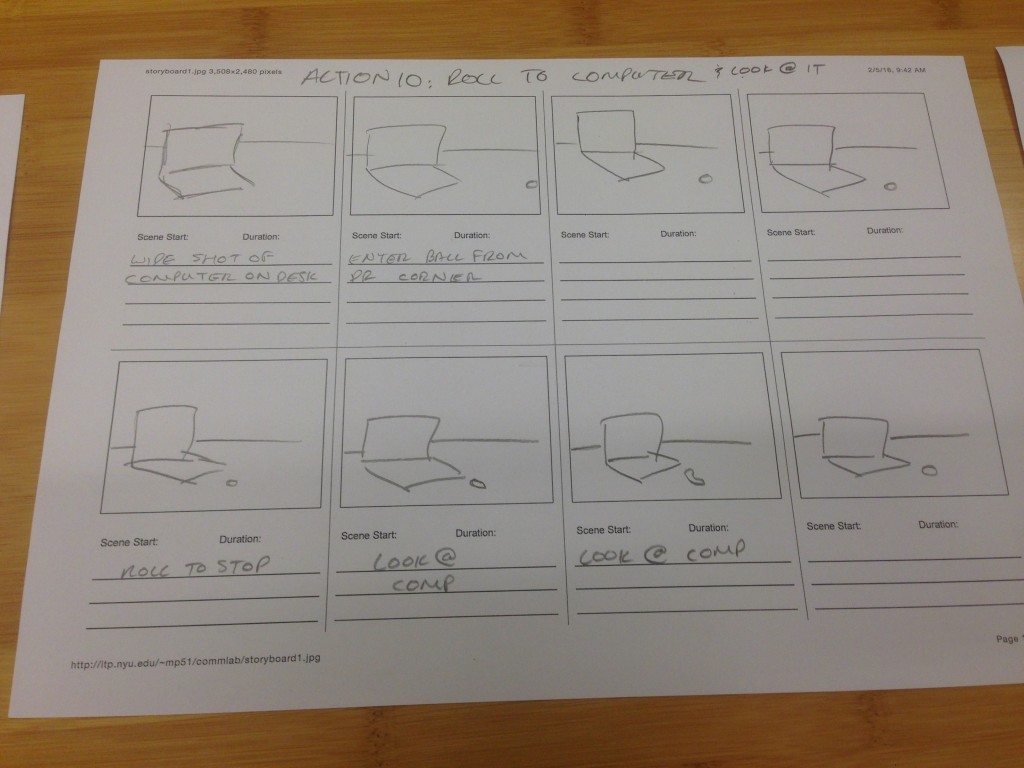 storyboard1.jpg 3,508×2,480 pixels
ACTION 10: ROLL TO COMPUTER & LOOK @ IT
2/5/16, 9:42 AM
Scene Start: Duration:
WIDE SHOT OF
COMPUTER ON DESK
Scene Start: Duration:
ENTER BALL FROM
DR CORNER
Scene Start: Duration:
Scene Start: Duration:
Scene Start: Duration:
ROLL TO STOP
Scene Start: Duration:
LOOK @
COMP
Scene Start: Duration:
LOOK @ COMP
Scene Start: Duration:
http://itp.nyu.edu/~mp51/commlab/storyboard1.jpg
Page